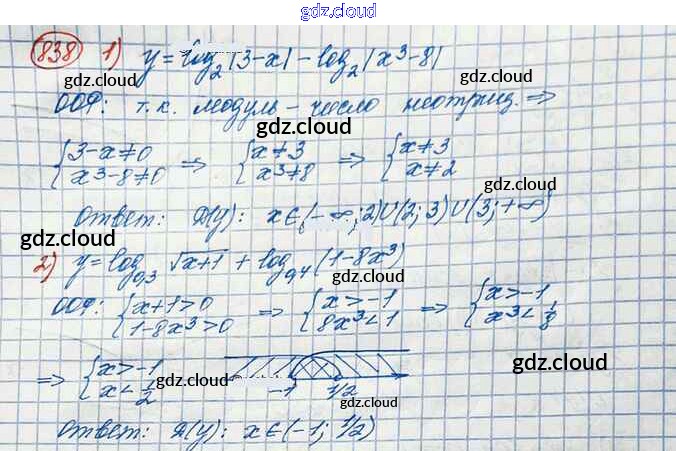 gdz.cloud
838 1) y = log₂|3-x| - log₂|x³-8|
gdz.cloud
gdz.cloud
ООФ: т.к. модуль - число неотриц. ⇒
gdz.cloud
{3-x≠0 ⇒ {x≠3 ⇒ {x≠3
{x³-8≠0 {x³≠8 {x≠2
gdz.cloud
Ответ: D(y): x∈(-∞;2)∪(2;3)∪(3;+∞)
gdz.cloud
gdz.cloud
2) y = log₀,₃ √x+1 + log₀,₄ (1-8x³)
gdz.cloud
ООФ: {x+1>0 ⇒ {x>-1 ⇒ {x>-1
{1-8x³>0 {8x³<1 {x³<1/8
gdz.cloud
⇒ {x>-1
{x<1/2 -1 1/2
gdz.cloud
gdz.cloud
gdz.cloud
Ответ: D(y): x∈(-1; 1/2)
gdz.cloud